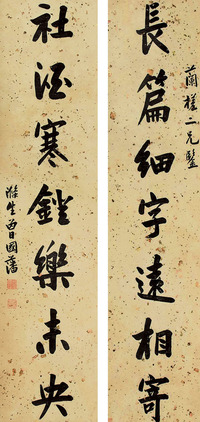 蘭
二兄鑒
長篇細字遠相寄
社酒寒鐙樂未央
滌生曾國藩